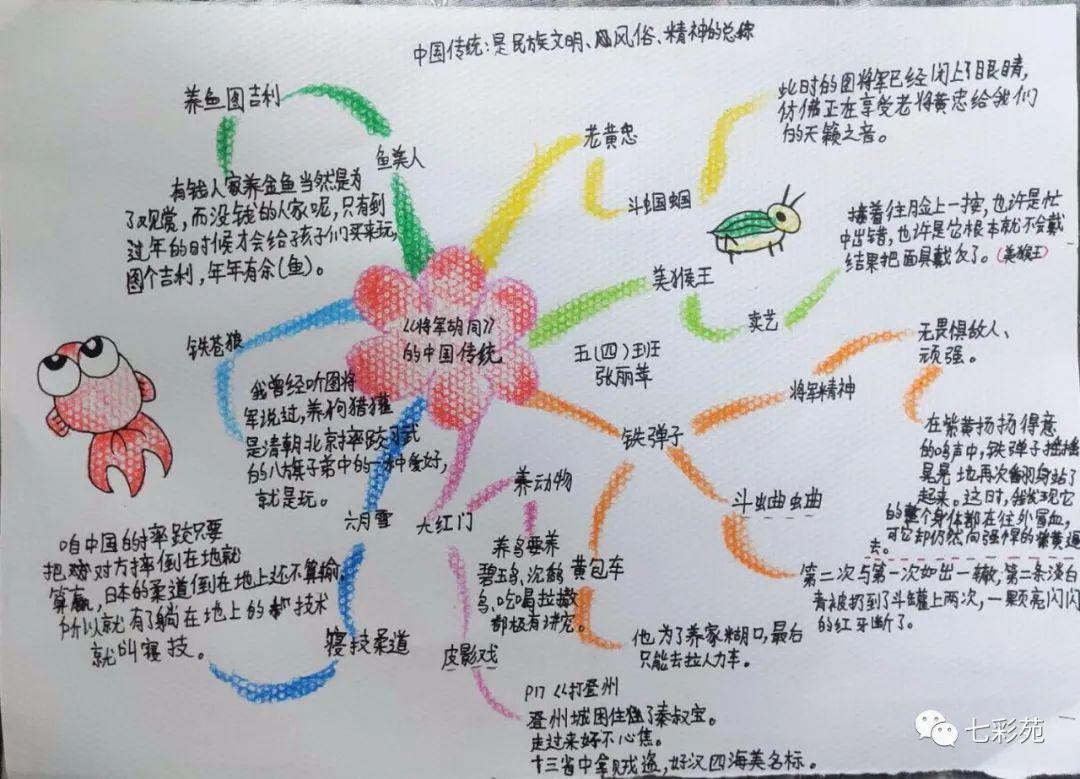 中国传统:是民族文明、风俗、精神的总称
养鱼图吉利
鱼美人
有钱人家养金鱼当然是为
了观赏,而没钱的人家呢,只有到
过年的时候才会给孩子们买来玩,
图个吉利,年年有余(鱼)。
老黄忠
斗蝈蝈
此时的图将军已经闭上了眼睛,
仿佛正在享受老将黄忠给我们
的天籁之音。
美猴王
卖艺
接着往脸上一按,也许是忙
中出错,也许是他根本就不会戴
结果把面具戴反了。(美猴王)
《将军胡同》
的中国传统
五(四)班
张丽苹
铁苍狼
我曾经听图将
军说过,养狗猎獾
是清朝北京摔跤习武
的八旗子弟中的一种爱好,
就是玩。
铁弹子
将军精神
无畏惧敌人、
顽强。
在紫黄扬扬得意
的鸣声中,铁弹子摇摇
晃晃地再次翻身站了
起来。这时,我发现它
的整个身体都在往外冒血,
可它却仍然向强悍的紫黄逼
去。
斗蛐蛐
第二次与第一次如出一辙,第二条淡白
青被扔到了斗罐上两次,一颗亮闪闪
的红牙断了。
黄包车
他为了养家糊口,最后
只能去拉人力车。
大红门
养动物
养鸟要养
碧玉鸟、沉鹤
鸟、吃喝拉撒
都极有讲究。
皮影戏
P17《打登州
登州城困住了秦叔宝。
走过来好不心焦。
十三省中拿贼盗,好汉四海美名标。
六月雪
寝技柔道
咱中国的摔跤只要
把对方摔倒在地就
算赢,日本的柔道倒在地上还不算输,
所以就有了躺在地上的技术
就叫寝技。
七彩苑